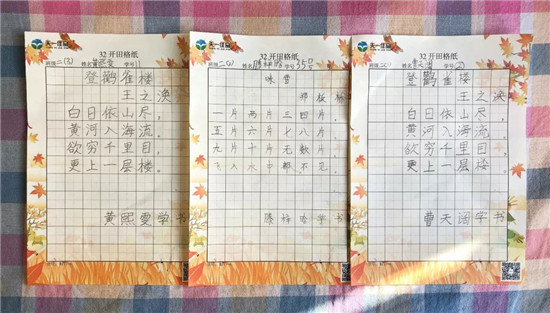 32 开田格纸
班级 二(3) 姓名 黄熙雯 学号 11
登鹳雀楼
王之涣
白日依山尽，
黄河入海流。
欲穷千里目，
更上一层楼。
黄熙雯学书
32 开田格纸
班级 姓名 学号 35号
咏雪
郑板桥
一片两片三四片，
五片六片七八片，
九片十片无数片，
飞入水中都不见。
学书
32 开田格纸
班级 姓名 学号
登鹳雀楼
王之涣
白日依山尽，
黄河入海流。
欲穷千里目，
更上一层楼。
曹天阔学书